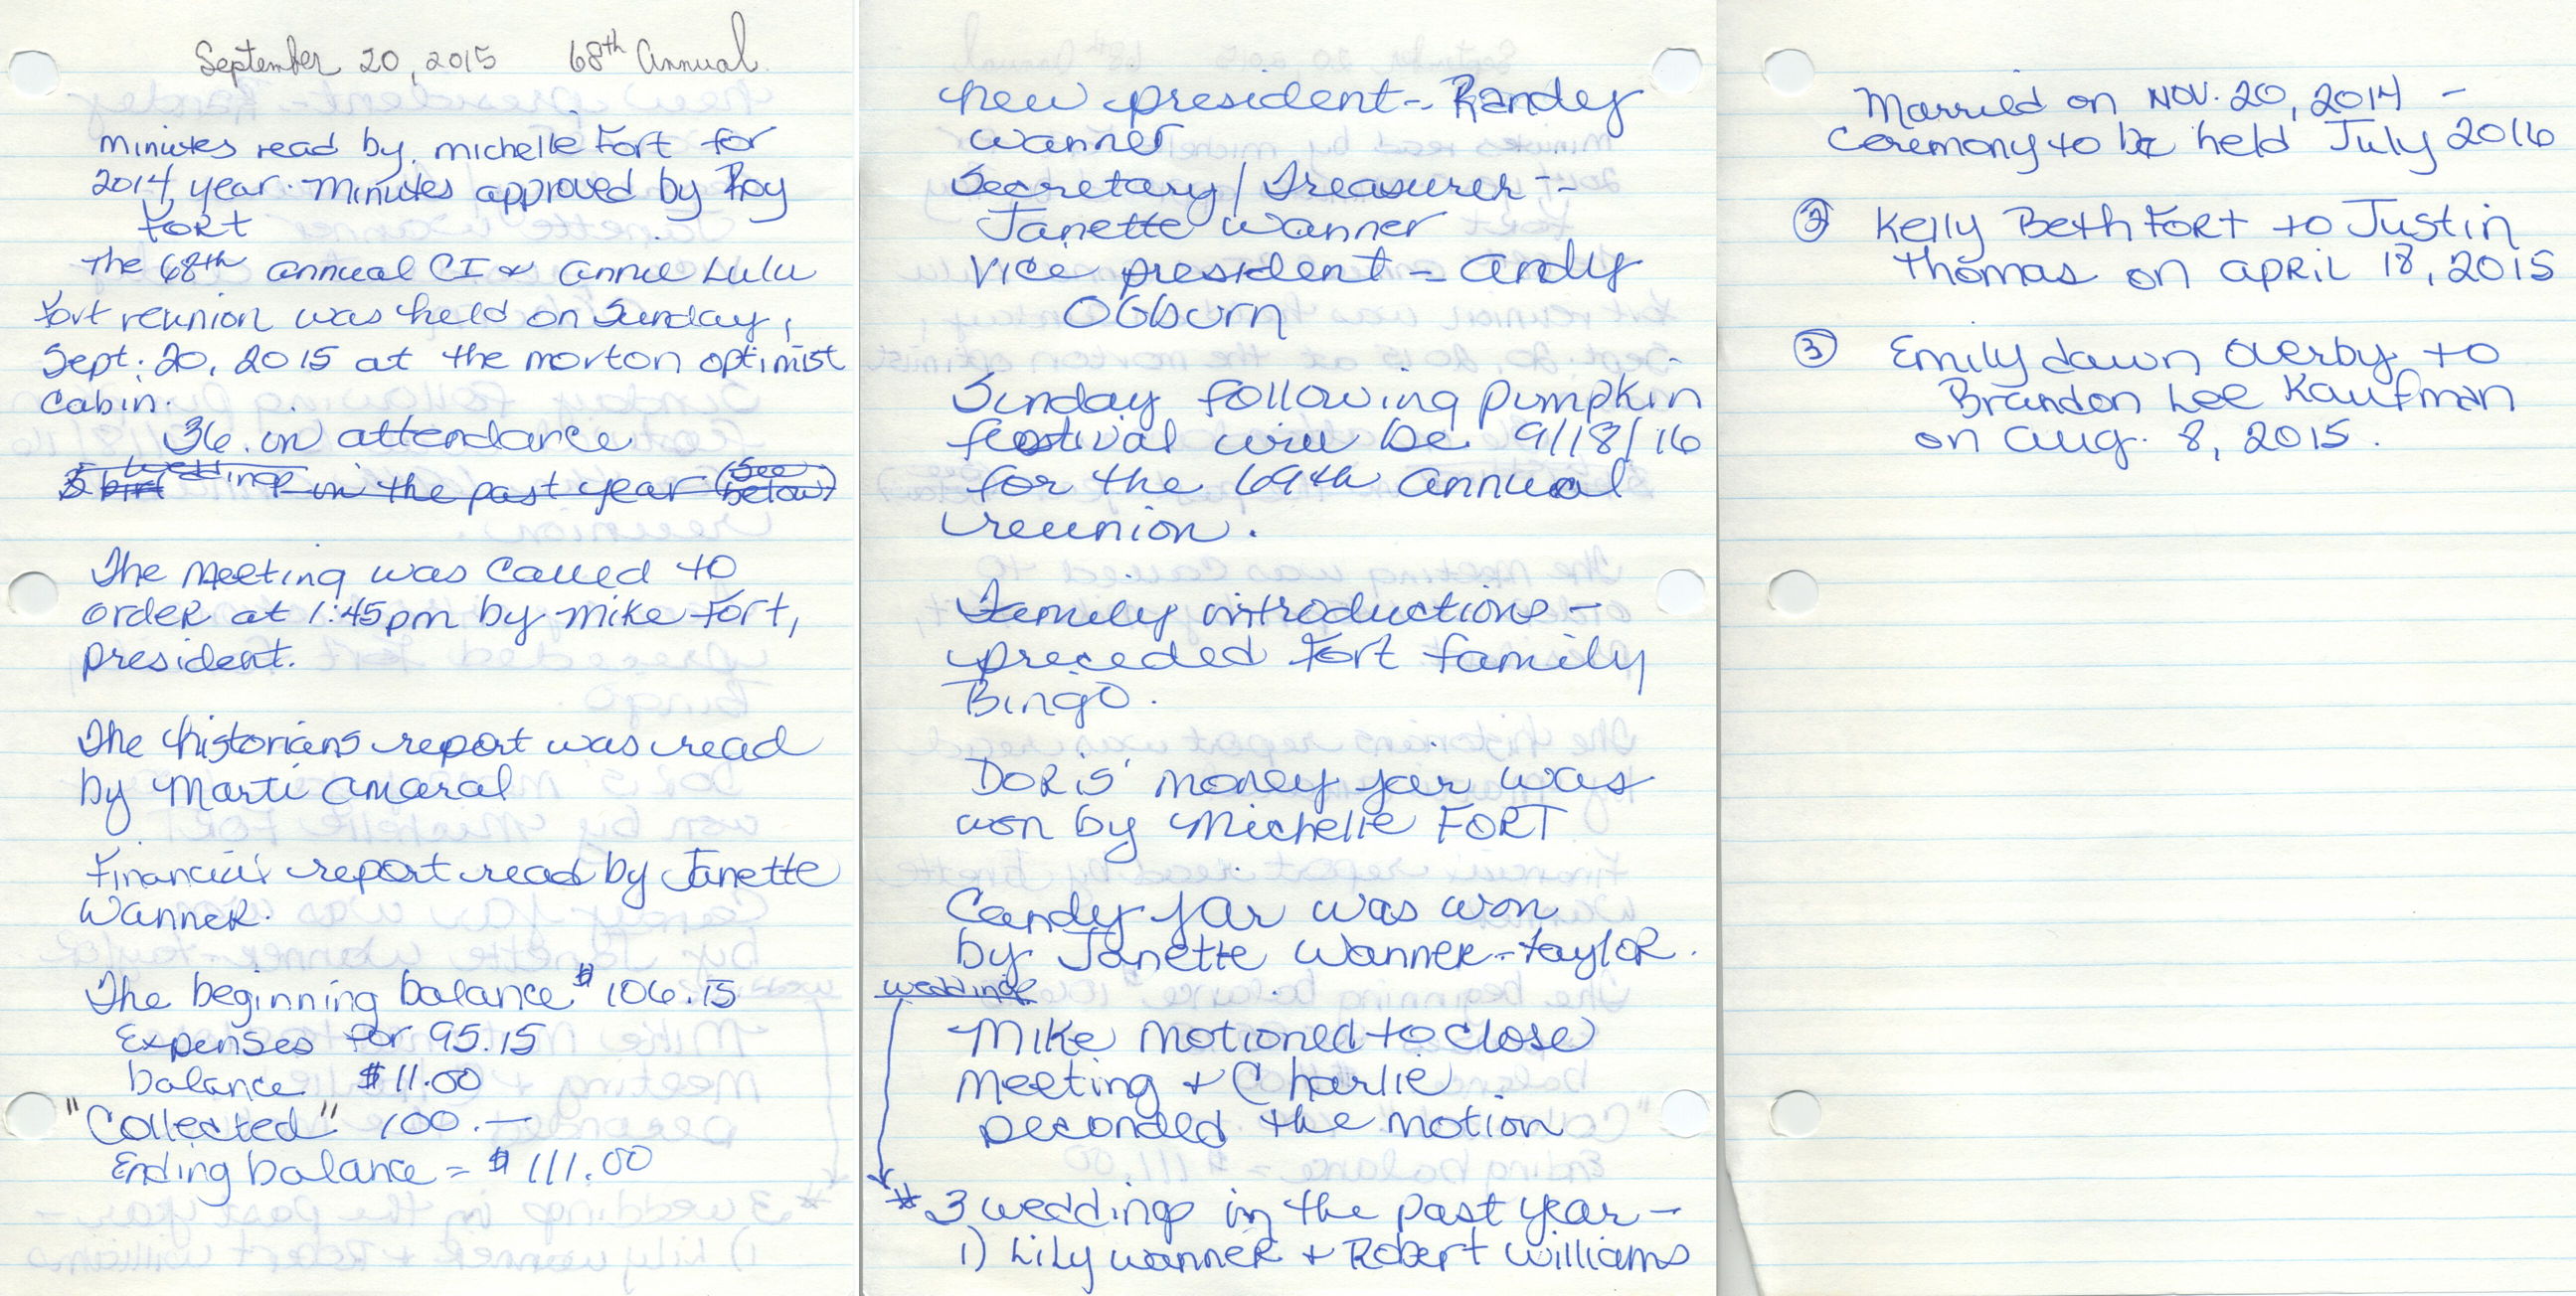 September 20, 2015 68th Annual
minutes read by michelle Fort for
2014 year. Minutes approved by Roy
Fort
The 68th annual CI & Annie Lulu
Fort reunion was held on Sunday,
Sept. 20, 2015 at the morton optimist
Cabin.
36 in attendance
weddings in the past year (see
below)
The meeting was called to
order at 1:45pm by mike Fort,
president.
The historians report was read
by Marti Amaral
Financial report read by Janette
Wanner.
The beginning balance $106.15
Expenses for 95.15
balance $11.00
"Collected" 100.—
Ending balance = $111.00
new president - Randy
Wanner
Secretary/Treasurer --
Janette Wanner
Vice president - Andy
Ogburn
Sunday following pumpkin
festival will be 9/18/16
for the 69th annual
reunion.
Family introductions -
preceded Fort family
Bingo.
Doris' money jar was
won by Michelle FORT
Candy jar was won
by Janette Wanner-Taylor.
weddings
Mike motioned to close
meeting & Charlie
seconded the motion
* 3 weddings in the past year -
1) Lily Wanner & Robert Williams
Married on Nov. 20, 2014 -
Ceremony to be held July 2016
② Kelly Beth Fort to Justin
Thomas on April 18, 2015
③ Emily dawn Overby to
Brandon Lee Kaufman
on Aug. 8, 2015.